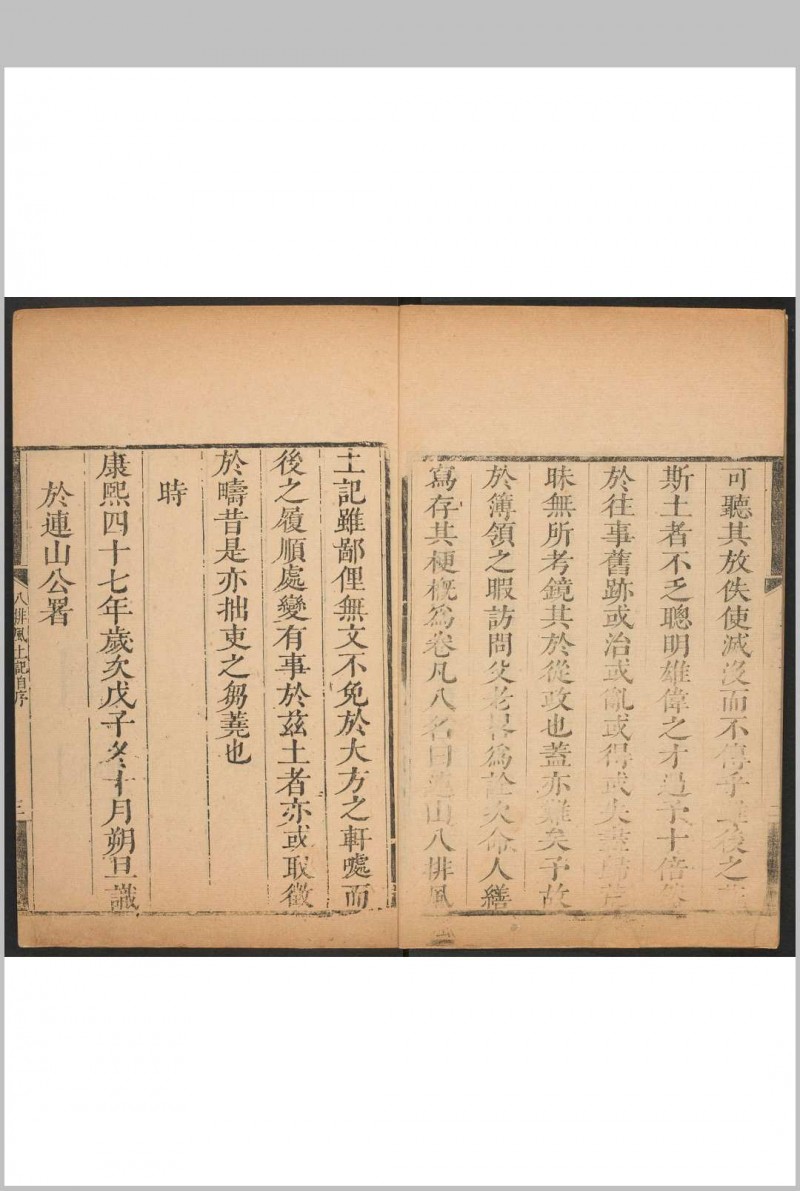 可聽其放佚使滅沒而不傳乎後之
斯土者不乏聰明雄偉之才過予十倍
於往事舊跡或治或亂或得或失盡歸
昧無所考鏡其於從政也蓋亦難矣予故
於簿領之暇訪問父老畧為詮次命人繕
寫存其梗槪為卷凡八名曰連山八排風
土記雖鄙俚無文不免於大方之軒𠿒而
後之履順處變有事於茲土者亦或取徵
於疇昔是亦拙吏之芻蕘也
時
康熙四十七年歲次戊子冬十月朔旦識
於連山公署
八排風土記自序
三